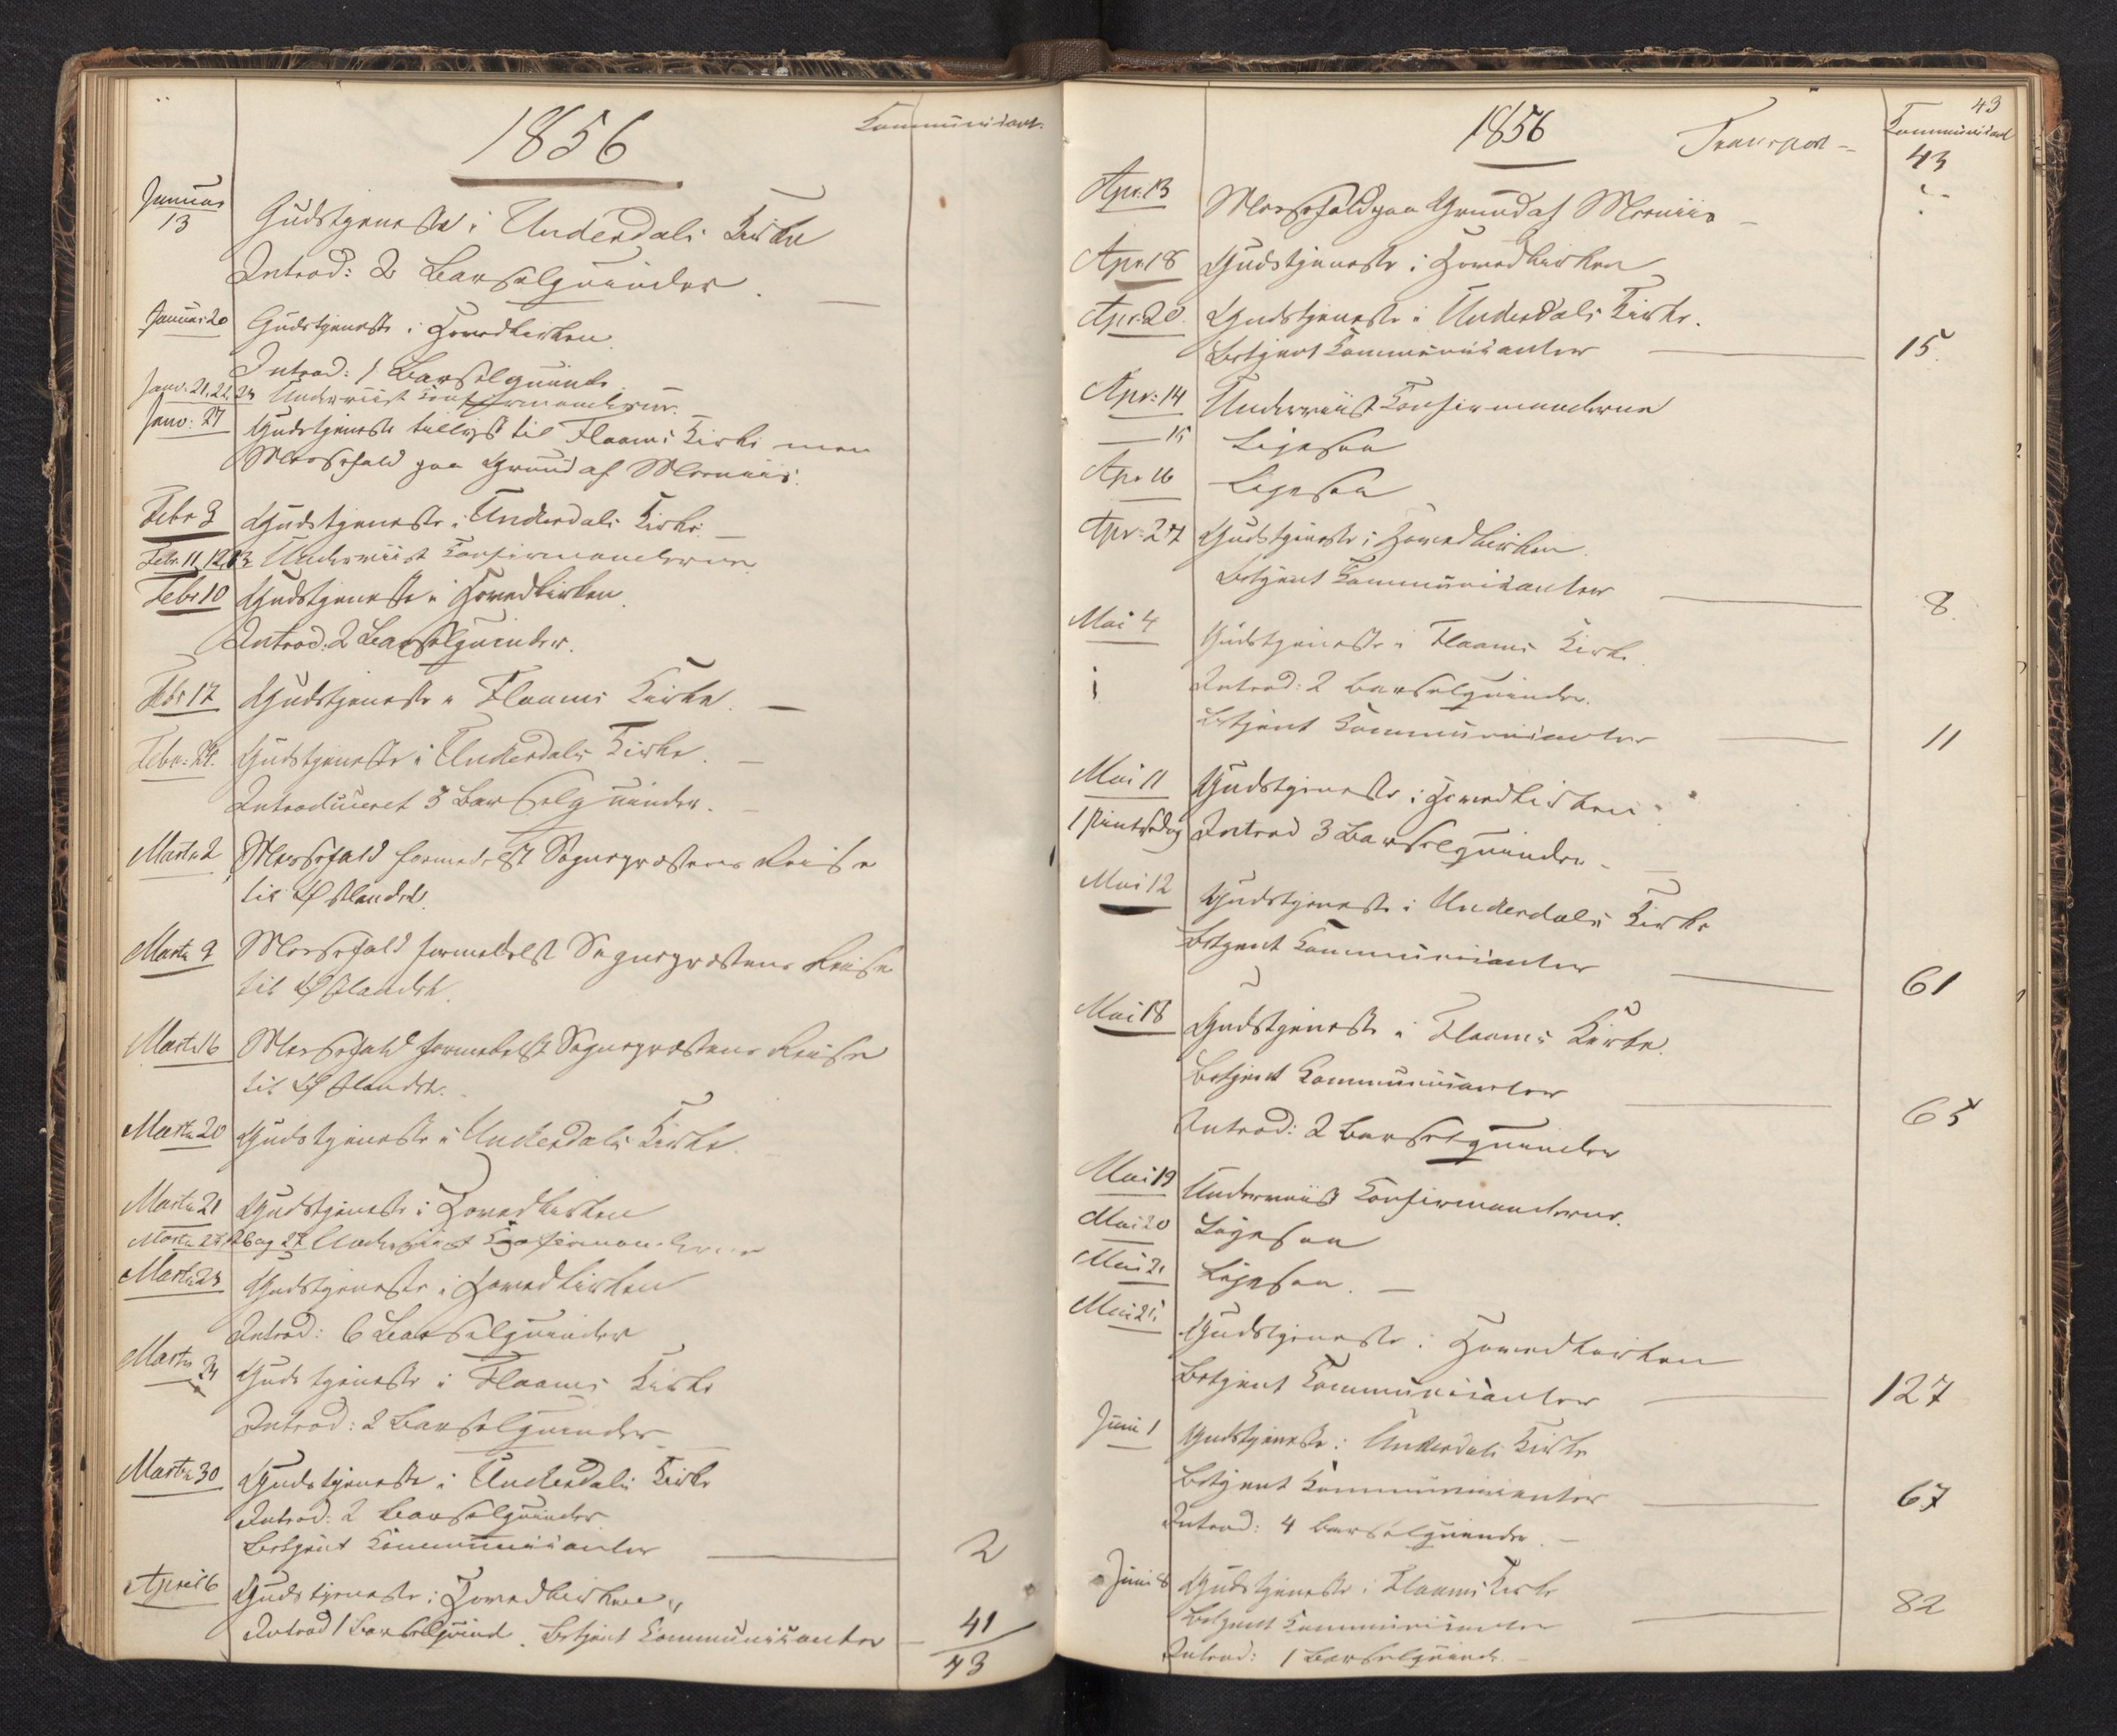 1856
Kommunicant.
Januar
13
Gudstjeneste i Underdals Kirke
Introd: 2 Barselqvinder.
Januar 20 Gudstjeneste i Hovedkirken.
Introd: 1 Barselqvinde.
Janv. 21, 22, 23 Underviist Konfirmanderne.
Janv: 27 Gudstjeneste tillyst til Flaams Kirke men
Messefald paa Grund af
Febr 3 Gudstjeneste i Underdals Kirke.
Febr. 11, 12, 13 Underviist Konfirmanderne
Febr 10 Gudstjeneste i Hovedkirken.
Introd: 2 Barselqvinder.
Febr 17 Gudstjeneste i Flaams Kirke.
Febr: 24. Gudstjeneste i Underdals Kirke.
Introduceret 3 Barselqvinder.
Marts 2 Messefald formedelst Sognepræstens Reise
til Østlandet.
Marts 9 Messefald formedelst Sognepræstens Reise
til Østlandet.
Marts 16 Messefald formedelst Sognepræstens Reise
til Østlandet.
Marts 20 Gudstjeneste i Underdals Kirke.
Marts 21 Gudstjeneste i Hovedkirken
Marts 25, 26 og 27 Underviist Konfirmanderne
Marts 23 Gudstjeneste i Hovedkirken
Introd: 6 Barselqvinder
Marts
24 Gudstjeneste i Flaams Kirke
Introd: 2 Barselqvinder
Marts 30 Gudstjeneste i Underdals Kirke
Introd: 2 Barselqvinder
Betjent Kommunicanter 2
April 6 Gudstjeneste i Hovedkirken
Introd 1 Barselqvind. Betjent Kommunicanter 41
43
43
1856 Transport - Kommunicant
43
Apr. 13 Messefald paa Grund af
Apr 18 Gudstjeneste i Hovedkirken
Apr: 20. Gudstjeneste i Underdals Kirke.
Betjent Kommunicanter 15.
Apr: 14 Underviist Konfirmanderne
— 15 Ligesaa
Apr 16 Ligesaa
Apr: 27 Gudstjeneste i Hovedkirken.
Betjent Kommunicanter 8.
Mai 4 Gudstjeneste i Flaams Kirke.
Introd: 2 Barselqvinder.
Betjent Kommunicanter 11
Mai 11 Gudstjeneste i Hovedkirken
1 Pintsedag Introd 3 Barselqvinder
Mai 12 Gudstjeneste i Underdals Kirke
Betjent Kommunicanter 61
Mai 18 Gudstjeneste i Flaams Kirke.
Betjent Kommunicanter 65
Introd: 2 Barselqvinder
Mai 19 Underviist Konfirmanderne.
Mai 20 Ligesaa
Mai 21 Ligesaa.
Mai 25 Gudstjeneste i Hovedkirken
Betjent Kommunicanter 127
Juni 1 Gudstjeneste i Underdals Kirke
Betjent Kommunicanter 67
Introd: 4 Barselqvinder.
Juni 8 Gudstjeneste i Flaams Kirke
Betjent Kommunicanter 82
Introd: 1 Barselqvinde